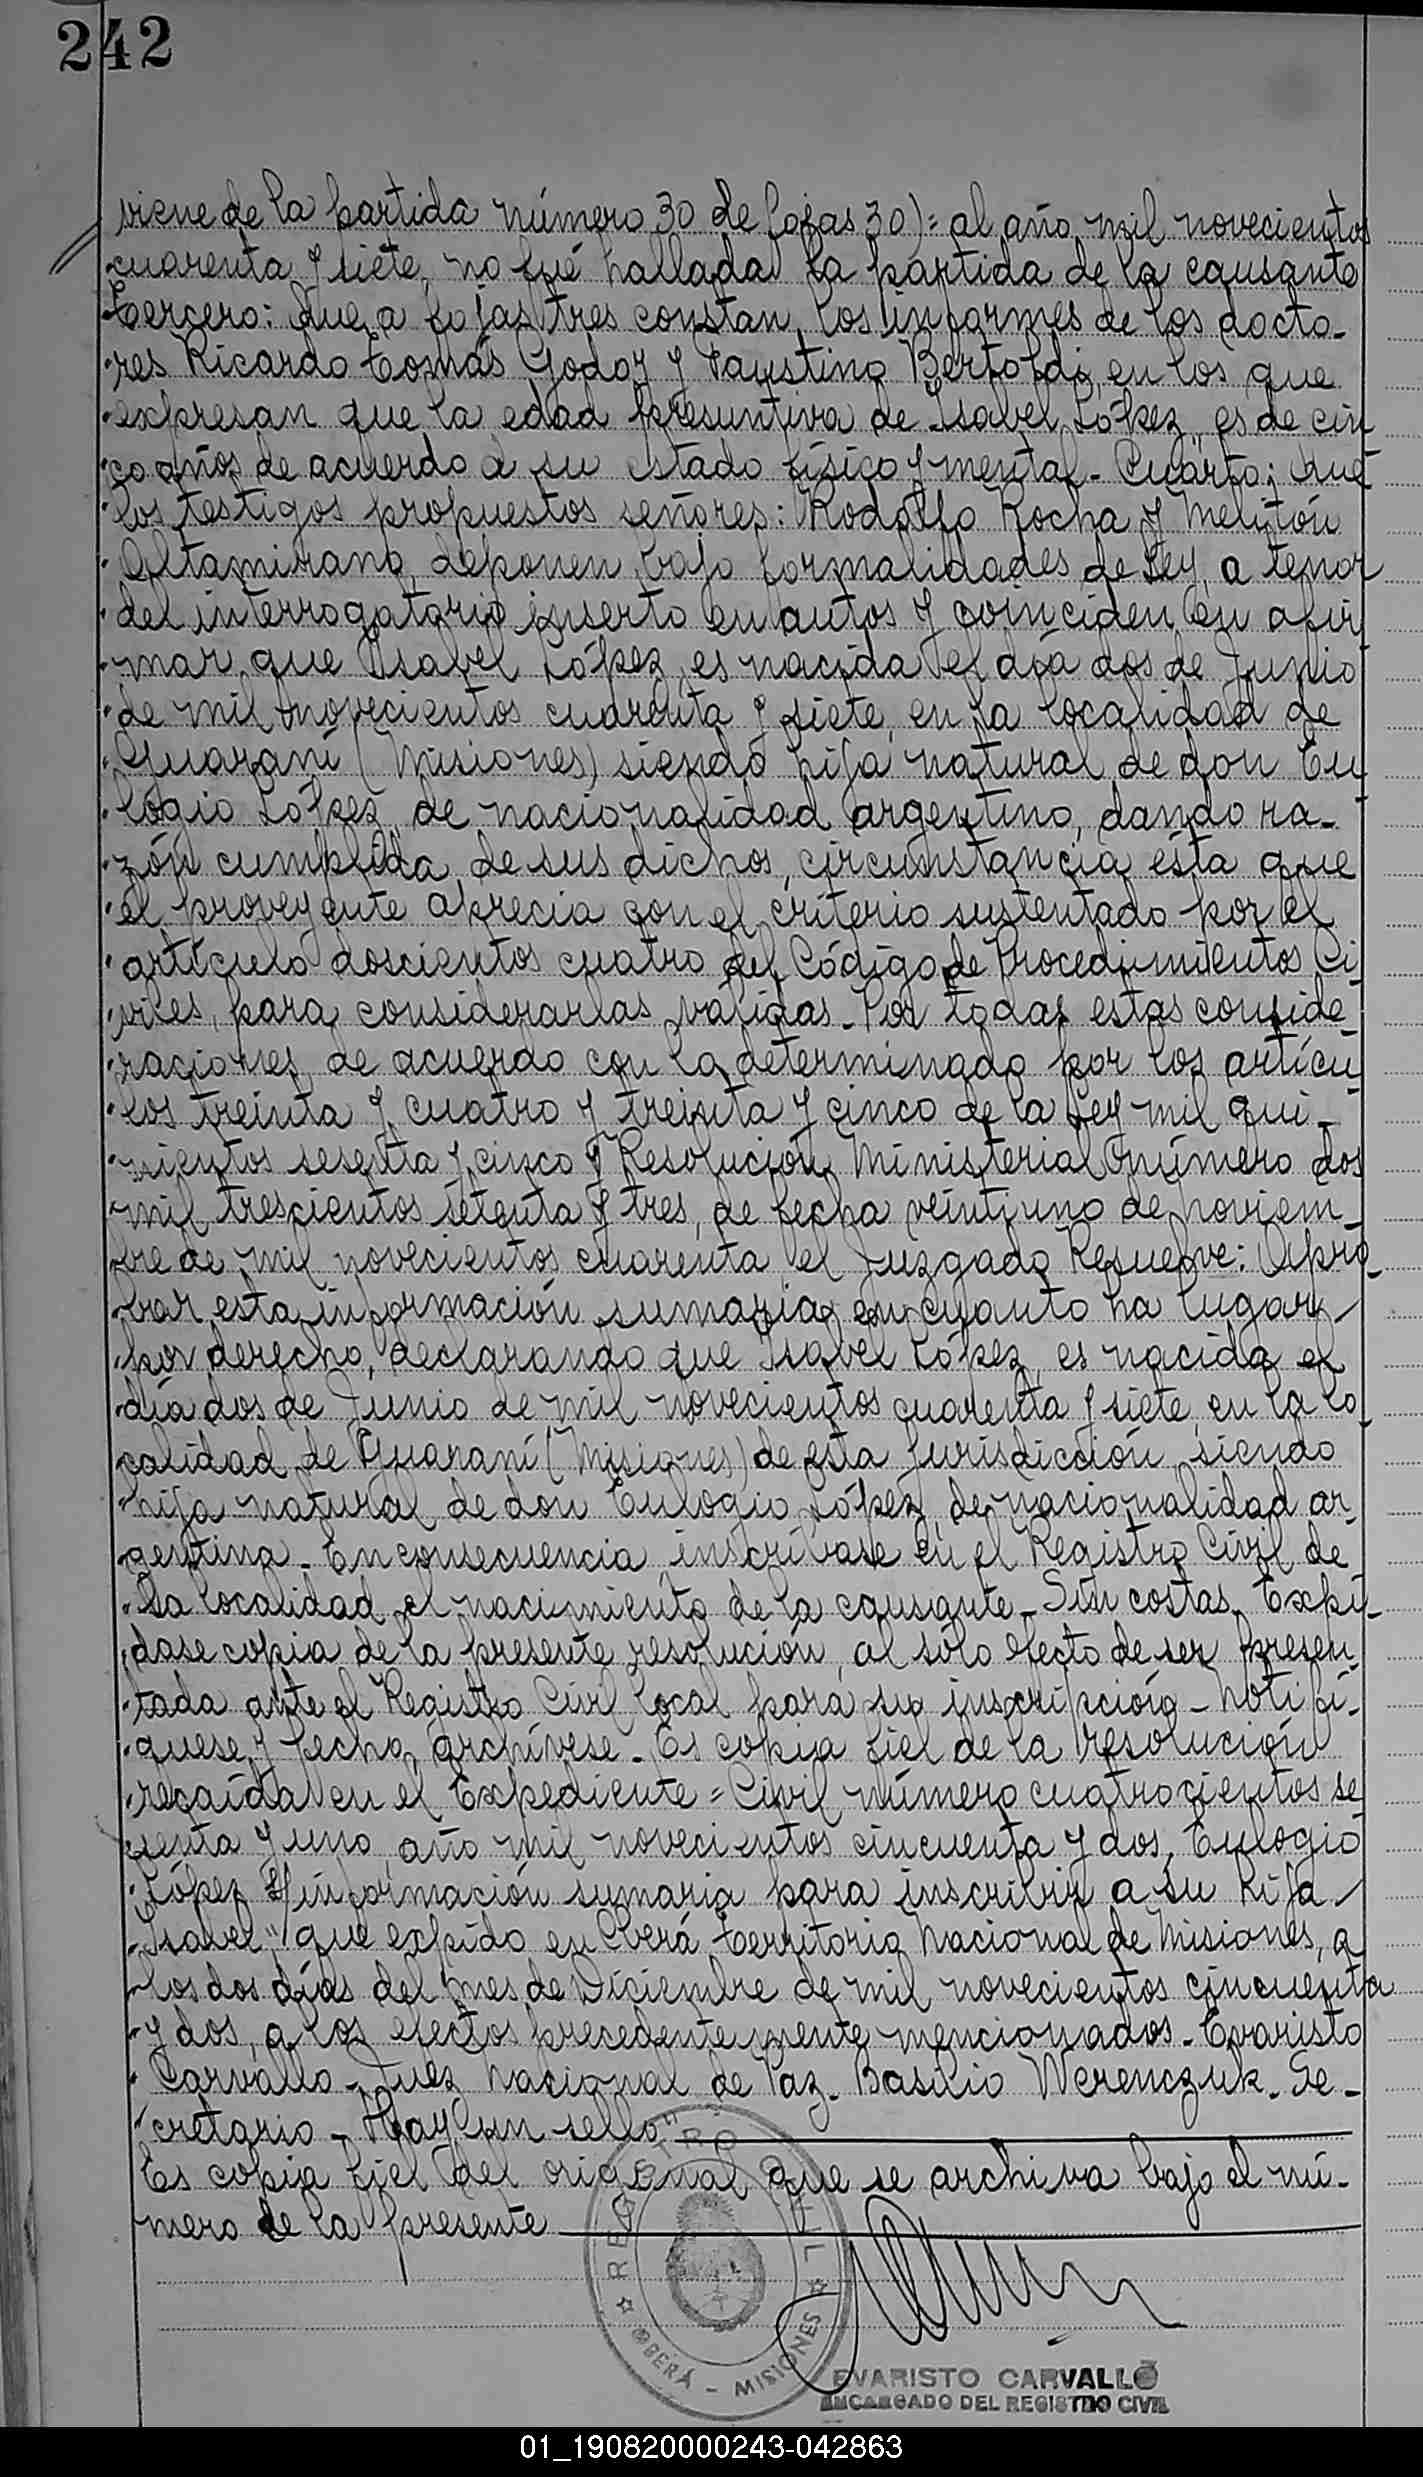 242
viene de la partida número 30 de fojas 30)= al año mil novecientos
cuarenta y siete, no fué hallada la partida de la causante
tercero: Que a fojas tres constan, los informes de los docto-
res Ricardo Tomás Godoy y Faustino Bertoldi, en los que
expresan que la edad presuntiva de Isabel López, es de cin
co años de acuerdo a su estado físico y mental - Cuarto: Que
los testigos propuestos señores: Rodolfo Rocha y Melitón
Altamirano, deponen bajo formalidades de Ley, a tenor
del interrogatorio inserto en autos y coinciden en afir
mar que Isabel López, es nacida el día dos de Junio
de mil novecientos cuarenta y siete, en la localidad de
Guaraní (Misiones) siendo hija natural de don Eu
logio López, de nacionalidad argentino, dando ra-
zón cumplida, de sus dichos, circunstancia esta que
el proveyente aprecia con el criterio sustentado por el
artículo doscientos cuatro del Código de Procedimientos Ci
viles, para considerarlas válidas - Por todas estas conside-
raciones, de acuerdo con lo determinado por los artícu
los treinta y cuatro y treinta y cinco de la Ley mil qui-
nientos sesenta y cinco y Resolución Ministerial número dos
mil trescientos setenta y tres, de fecha veintiuno de noviem-
bre de mil novecientos cuarenta el Juzgado Resuelve: Apro-
bar esta información sumaria en cuanto ha lugar
por derecho, declarando que Isabel López, es nacida el
día dos de Junio de mil novecientos cuarenta y siete, en la lo
calidad de Guaraní (Misiones) de esta Jurisdicción siendo
hija natural de don Eulogio López, de nacionalidad ar-
gentina - En consecuencia, inscríbase en el Registro Civil de
la localidad el nacimiento de la causante - Sin costas - Expí-
dase copia de la presente resolución, al sólo efecto de ser presen-
tada ante el Registro Civil local para su inscripción - Notifí-
quese y fecho, archívese - Es copia fiel de la resolución
recaída en el Expediente = Civil número cuatrocientos se
uno, año mil novecientos cincuenta y dos, Eulogio
López S/ información sumaria para inscribir a su hija
Isabel", que expido en Oberá, Territorio Nacional de Misiones, a
los dos días del mes de Diciembre de mil novecientos cincuenta
y dos, a los efectos precedentemente mencionados - Evaristo
Carvallo - Juez Nacional de Paz - Basilio Werenczuk - Se-
cretario - Hay un sello"
Es copia fiel del original que se archiva bajo el nú-
mero de la presente
REGISTRO CIVIL
OBERÁ - MISIONES
EVARISTO CARVALLO
ENCARGADO DEL REGISTRO CIVIL
01_190820000243-042863